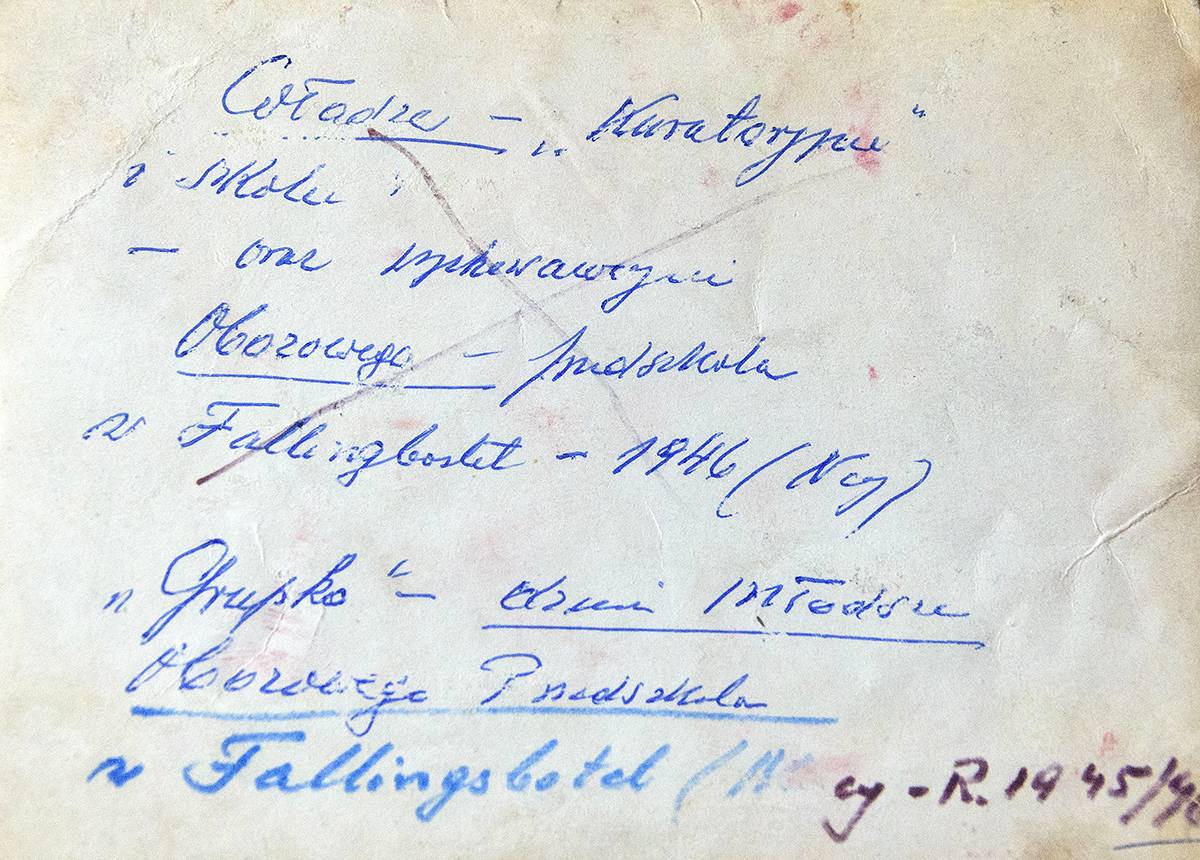 Władze – „Kuratoryjne"
i szkolne
– oraz wychowawczyni
Obozowego – przedszkola
w Fallingbostel – 1946 (Ncy)
„Grupka" – dzieci młodsze
Obozowego Przedszkola
w Fallingsbotel (N cy - R. 1945/46